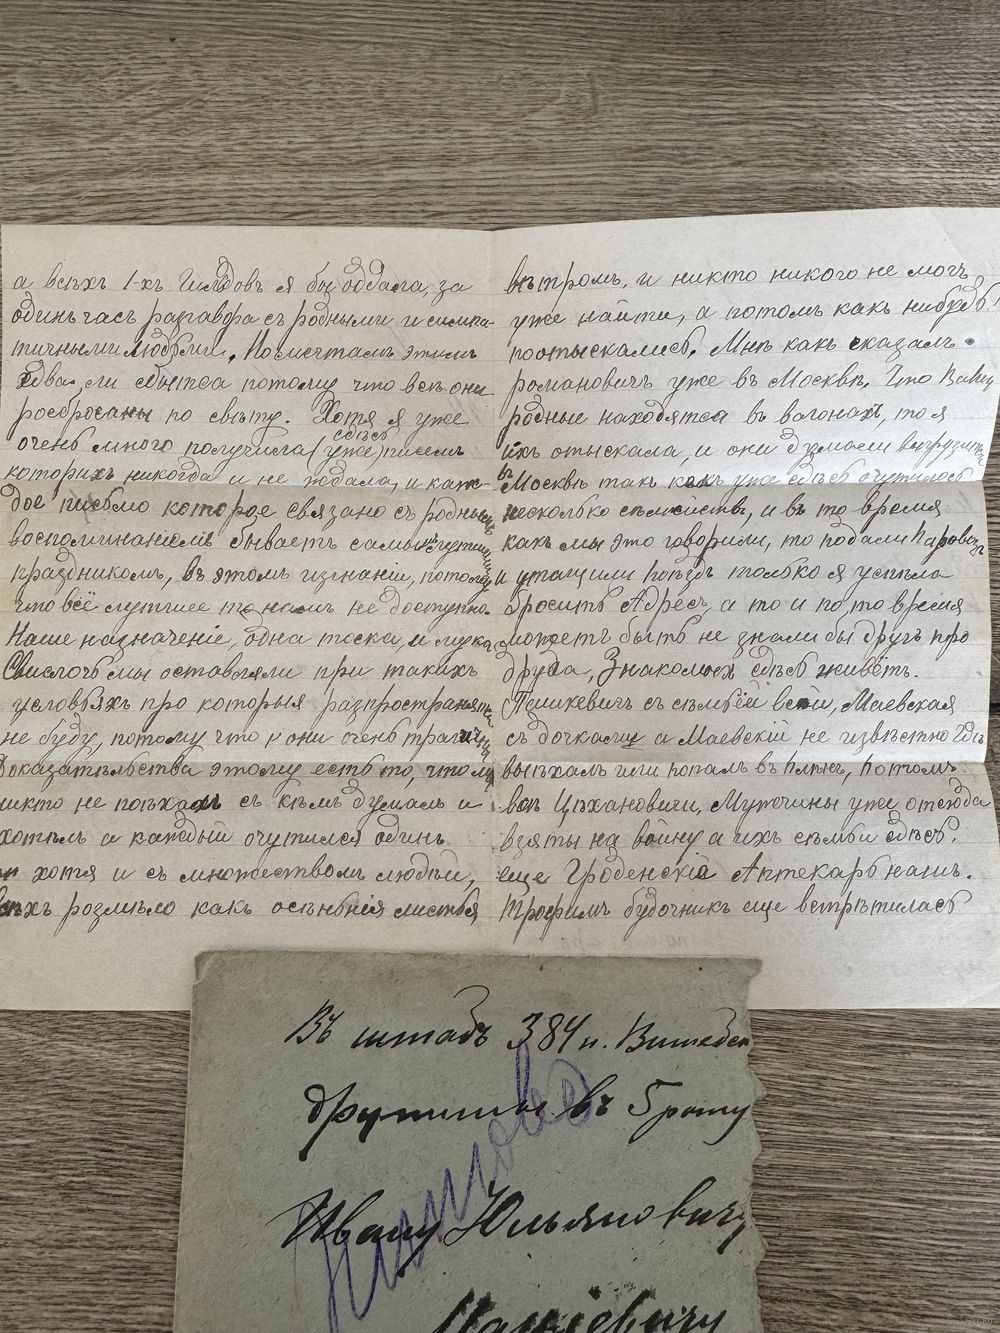 а всѣхъ 1-хъ я бы оддала, за
одинъ часъ разгавора съ родными и симпа-
тичными людьми. Помечтамъ этимъ
едва ли сбытса потому что всѣ они
розбросаны по свѣту. Хотя я уже
очень много получила (уже) здѣсь писемъ
которихъ никогда и не ждала, и каж-
дое письмо которое связано съ родными
воспоминаніемъ бываетъ самымъ
праздникомъ, въ этомъ изгнаніи, потому
что всё лутшее то намъ не доступно.
Наше назначеніе, одна тоска, и мука
Свислочь мы оставляли при такихъ
условьяхъ про которыя разпространятся
не буду, потому что они очень трагичны
Доказательства этому есть то, что мы
никто не поѣхалъ съ кѣмъ думалъ и
хотѣлъ а каждый очутился одинъ
хотя и съ множествомъ людьй,
всѣхъ розмѣло какъ осѣньнія листья
вѣтромъ, и никто никого не могъ
уже найти, а потомъ какъ нибудь
поотыскались. Мнѣ какъ сказалъ
романовичъ уже въ Москвѣ. Что Ваши
родные находятся въ вагонахъ, то я
ихъ отыскала, и они думали выгрузитьс
въ Москвѣ такъ какъ уже здѣсь очутилось
несколько сѣмействъ, и въ то время
какъ мы это говорили, то подали паровозъ
и утащили поѣздъ только я успѣла
бросить Адресъ, а то и по то время
можетъ быть не знали бы другъ про
друга, Знакомыхъ здѣсь живётъ.
Пашкевичъ съ сѣмьёй всей, Маевская
съ дочками а Маевскій не извѣстно гдѣ
выѣхалъ или попалъ въ плѣнъ, потомъ
всѣ Цѣхановичи, Мужчины уже отсюда
взяты на войну а ихъ сѣмьи здѣсь.
еще Гроденскій Аптекарь нашъ.
Трофимъ будочникъ еще встрѣтилась
Въ штабъ 384 п. Витебск
дружины въ 5 роту
Ивану Юльяновичу
Мацкевичу